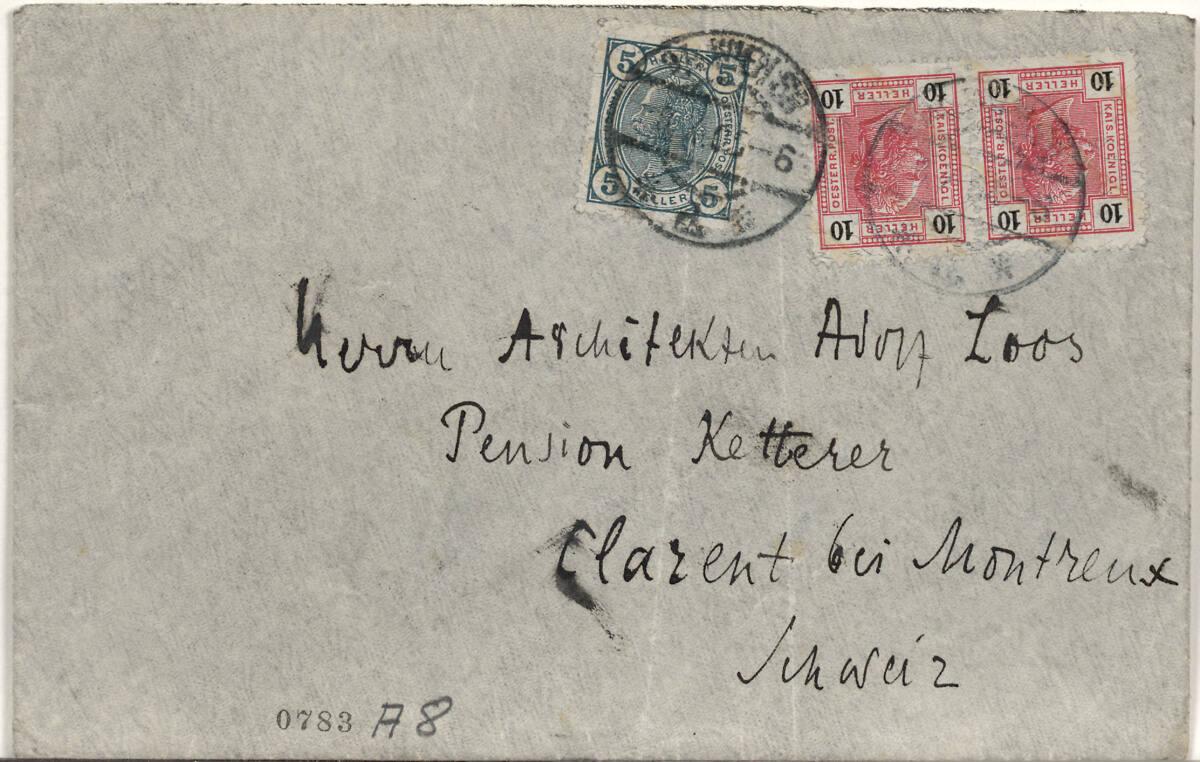 5 HELLER 5
OESTERR.POST.
5 HELLER 5
10 HELLER 10
OESTERR.POST. KAIS.KOENIGL.
10 HELLER 10
10 HELLER 10
OESTERR.POST. KAIS.KOENIGL.
10 HELLER 10
WIEN
6
Herrn Architekten Adolf Loos
Pension Ketterer
Clarent bei Montreux
Schweiz
0783 A8